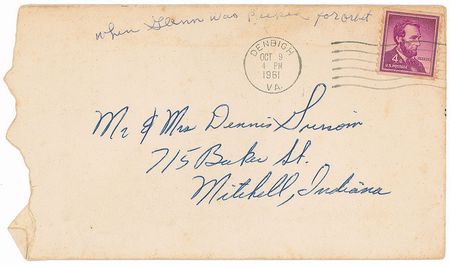 when Glenn was Picken for orbit
DENBIGH
OCT 9
4 PM
1961
VA.
4¢
U.S. POSTAGE
Mr & Mrs Dennis Grissom
715 Baker St.
Mitchell, Indiana